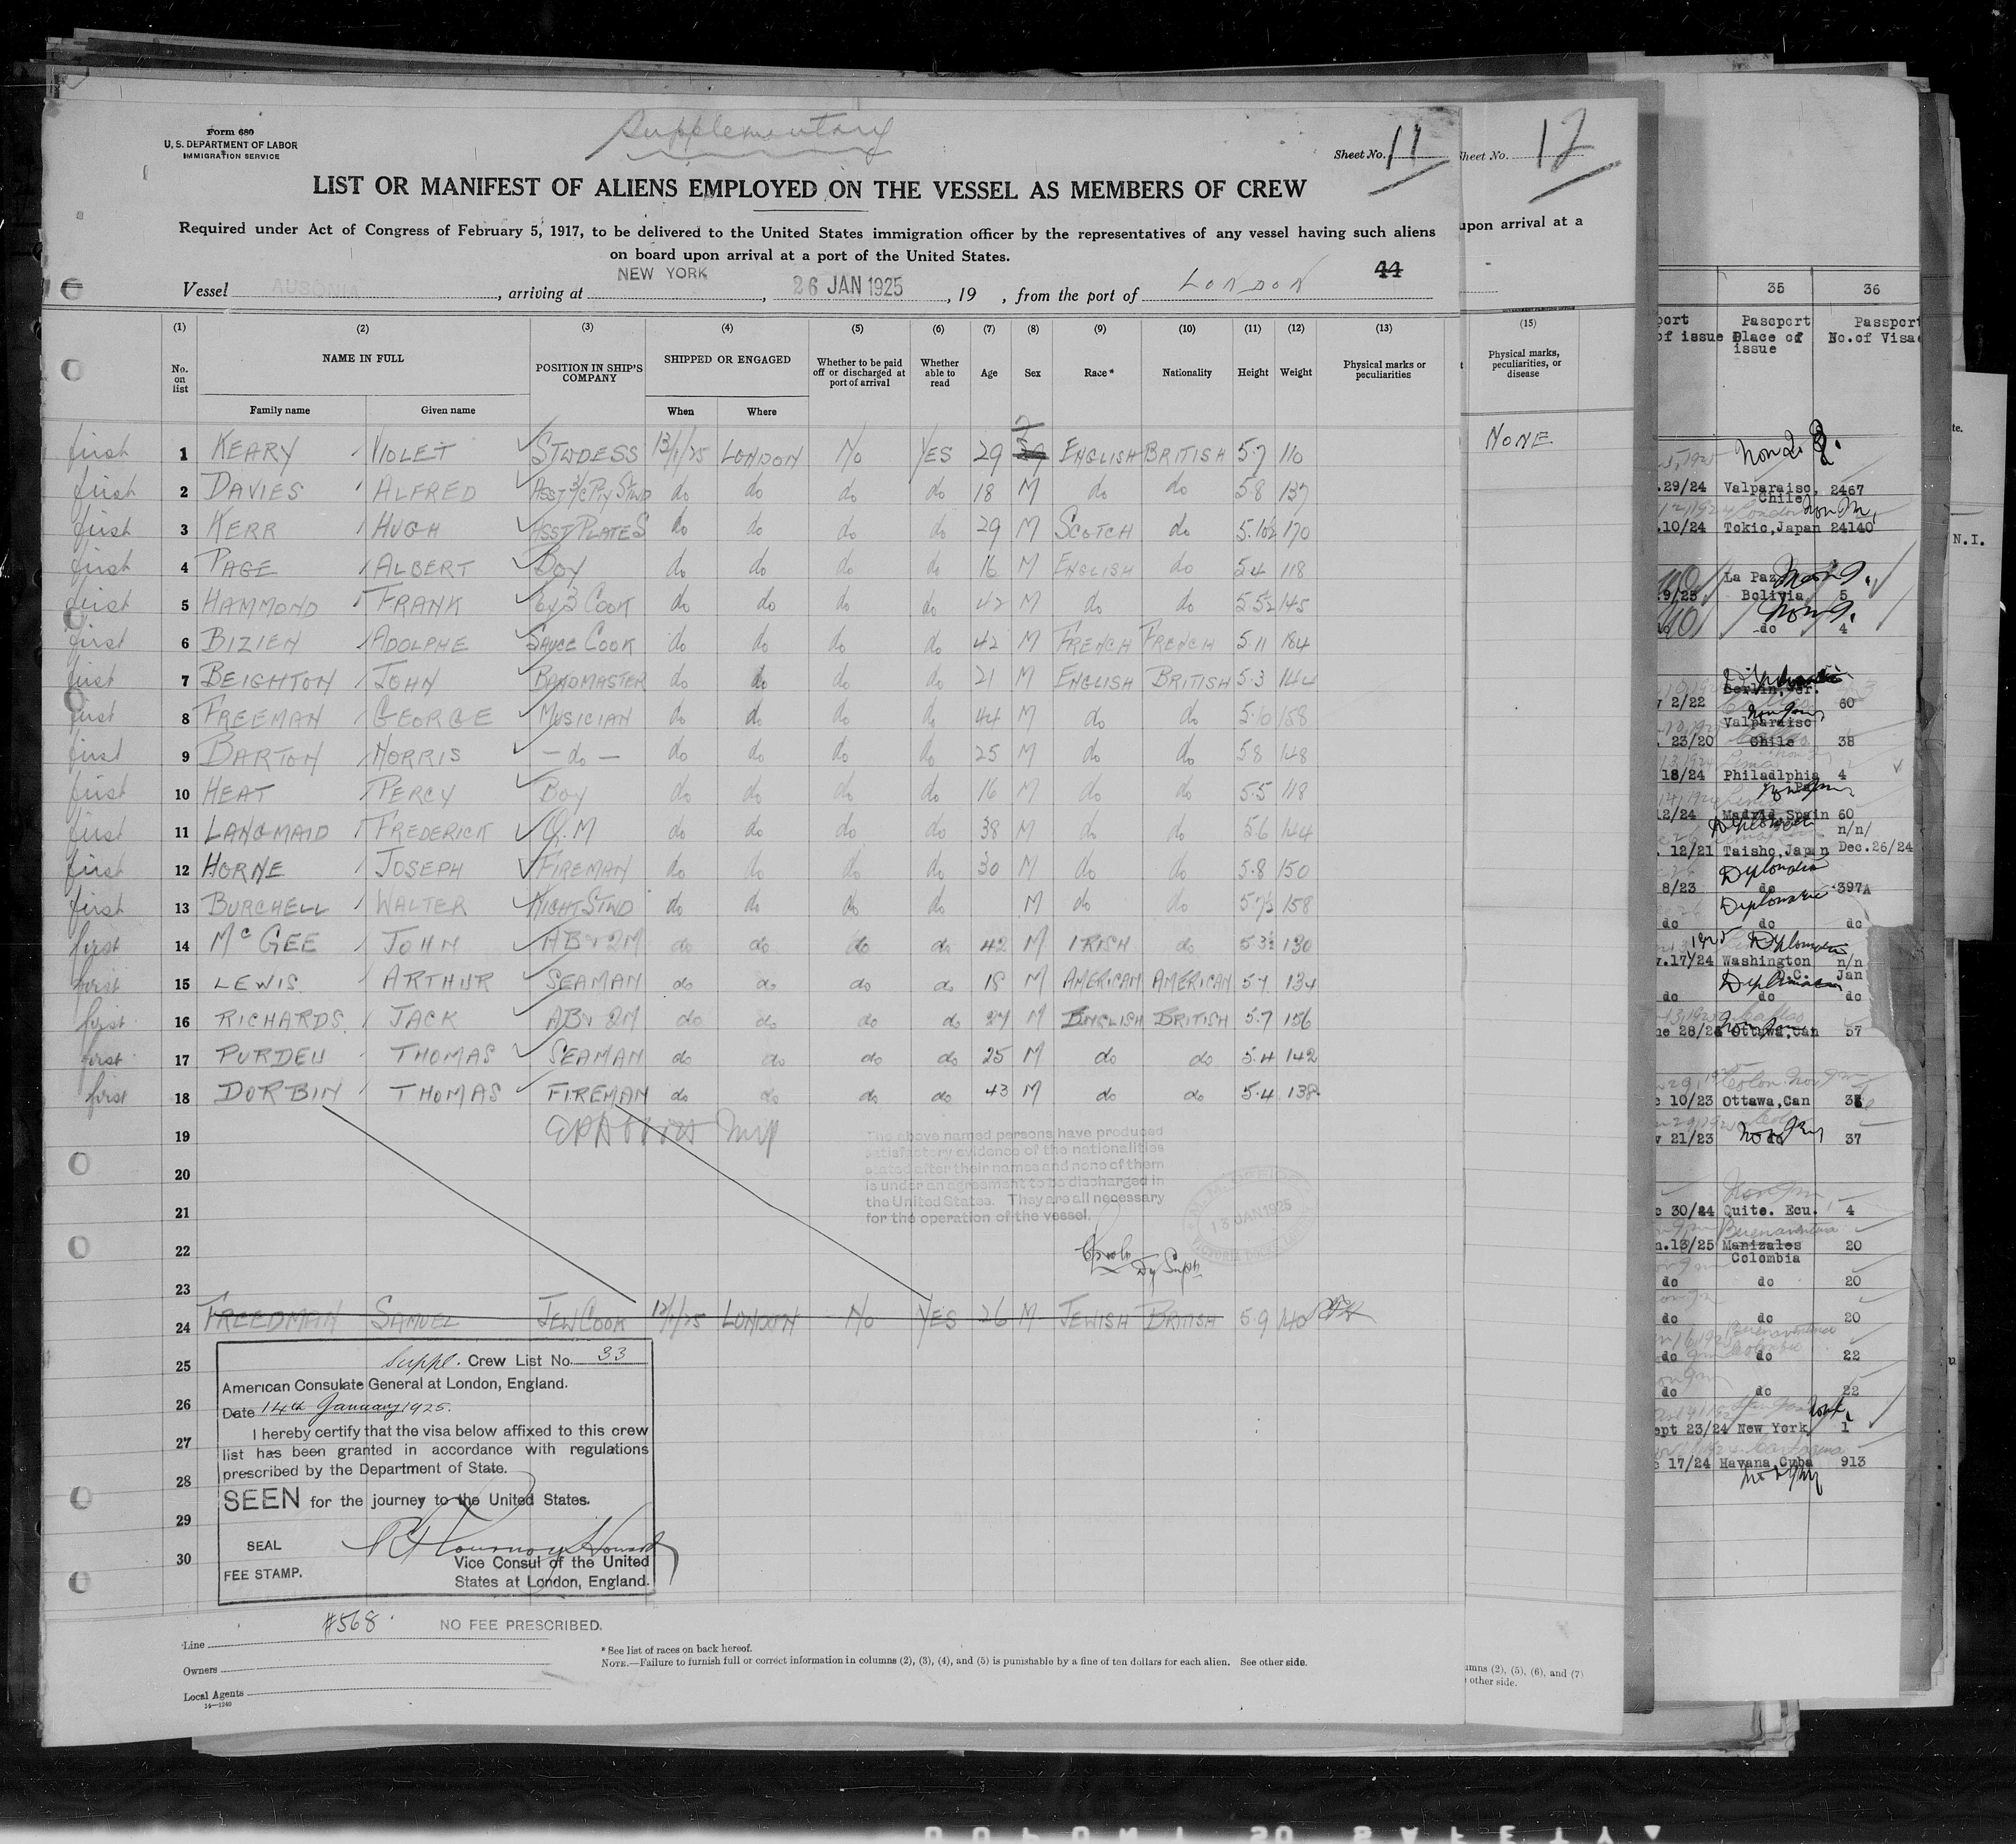 Supplementary
Form 680
U. S. DEPARTMENT OF LABOR
IMMIGRATION SERVICE
Sheet No. 11
LIST OR MANIFEST OF ALIENS EMPLOYED ON THE VESSEL AS MEMBERS OF CREW
Required under Act of Congress of February 5, 1917, to be delivered to the United States immigration officer by the representatives of any vessel having such aliens
on board upon arrival at a port of the United States.
44
Vessel AUSONIA, arriving at NEW YORK, 26 JAN 1925, 19 , from the port of LONDON
(1) (2) (3) (4) (5) (6) (7) (8) (9) (10) (11) (12) (13)
No. on list NAME IN FULL POSITION IN SHIP'S COMPANY SHIPPED OR ENGAGED Whether to be paid off or discharged at port of arrival Whether able to read Age Sex Race* Nationality Height Weight Physical marks or peculiarities
Family name Given name When Where
first 1 KEARY VIOLET STWDESS 13/1/25 LONDON No YES 29 ENGLISH BRITISH 5.7 110
first 2 DAVIES ALFRED ASST 3/C PTY STWD do do do do 18 M do do 5.8 137
first 3 KERR HUGH ASST PLATE S do do do do 29 M SCOTCH do 5.10½ 170
first 4 PAGE ALBERT BOY do do do do 16 M ENGLISH do 5.4 118
first 5 HAMMOND FRANK COOK do do do do 42 M do do 5.5½ 145
first 6 BIZIEN ADOLPHE SAUCE COOK do do do do 42 M FRENCH FRENCH 5.11 184
first 7 BEIGHTON JOHN BANDMASTER do do do do 21 M ENGLISH BRITISH 5.3 144
first 8 FREEMAN GEORGE MUSICIAN do do do do 44 M do do 5.10 158
first 9 BARTON NORRIS - do - do do do do 25 M do do 5.8 148
first 10 HEAT PERCY BOY do do do do 16 M do do 5.5 118
first 11 LANGMAID FREDERICK Q.M do do do do 38 M do do 5.6 144
first 12 HORNE JOSEPH FIREMAN do do do do 30 M do do 5.8 150
first 13 BURCHELL WALTER NIGHT STWD do do do do M do do 5.7½ 158
first 14 McGEE JOHN AB do do do do 42 M IRISH do 5.3½ 130
first 15 LEWIS ARTHUR SEAMAN do do do do 18 M AMERICAN AMERICAN 5.7 134
first 16 RICHARDS JACK AB do do do do 27 M ENGLISH BRITISH 5.7 156
first 17 PURDEU THOMAS SEAMAN do do do do 25 M do do 5.4 142
first 18 DORBIN THOMAS FIREMAN do do do do 43 M do do 5.4 138
19
20
21
22
23
The above named persons have produced
satisfactory evidence of the nationalities
stated after their names and none of them
is under an agreement to be discharged in
the United States. They are all necessary
for the operation of the vessel.
13 JAN 1925
Dy Supt
24 FREEDMAN SAMUEL JEW COOK 12/1/25 LONDON No YES 26 M JEWISH BRITISH 5.9 140
25
26
27
28
29
30
Suppl. Crew List No. 33
American Consulate General at London, England.
Date 14th January 1925.
I hereby certify that the visa below affixed to this crew
list has been granted in accordance with regulations
prescribed by the Department of State.
SEEN for the journey to the United States.
SEAL
Vice Consul of the United
FEE STAMP.
States at London, England.
#568 NO FEE PRESCRIBED.
Line
Owners
Local Agents
14—1240
* See list of races on back hereof.
NOTE.—Failure to furnish full or correct information in columns (2), (3), (4), and (5) is punishable by a fine of ten dollars for each alien. See other side.
Sheet No. 12
upon arrival at a
(15)
Physical marks, peculiarities, or disease
NONE
umns (2), (5), (6), and (7)
other side.
35 36
Passport Place of issue
Passport No. of Visa
29/24 Valparaiso, Chile 2467
10/24 Tokio, Japan 24140
La Paz
9/25 Bolivia 5
do 4
Berlin, Ger.
2/22 60
Valparaiso
23/20 Chile 38
18/24 Philadlphia 4
12/24 Madrid, Spain 60
n/n/
12/21 Taisho, Japan Dec.26/24
Diplomatic
8/23 do 397A
Diplomatic
do do do
17/24 Washington n/n
D.C. Jan
do do do
28/24 Ottawa, Can 57
10/23 Ottawa, Can
21/23 37
30/24 Quito. Ecu. 4
Buenaventura
13/25 Manizales 20
Colombia
do do 20
do do 20
do do 22
do do 22
Sept 23/24 New York 1
17/24 Havana, Cuba 913
N.I.